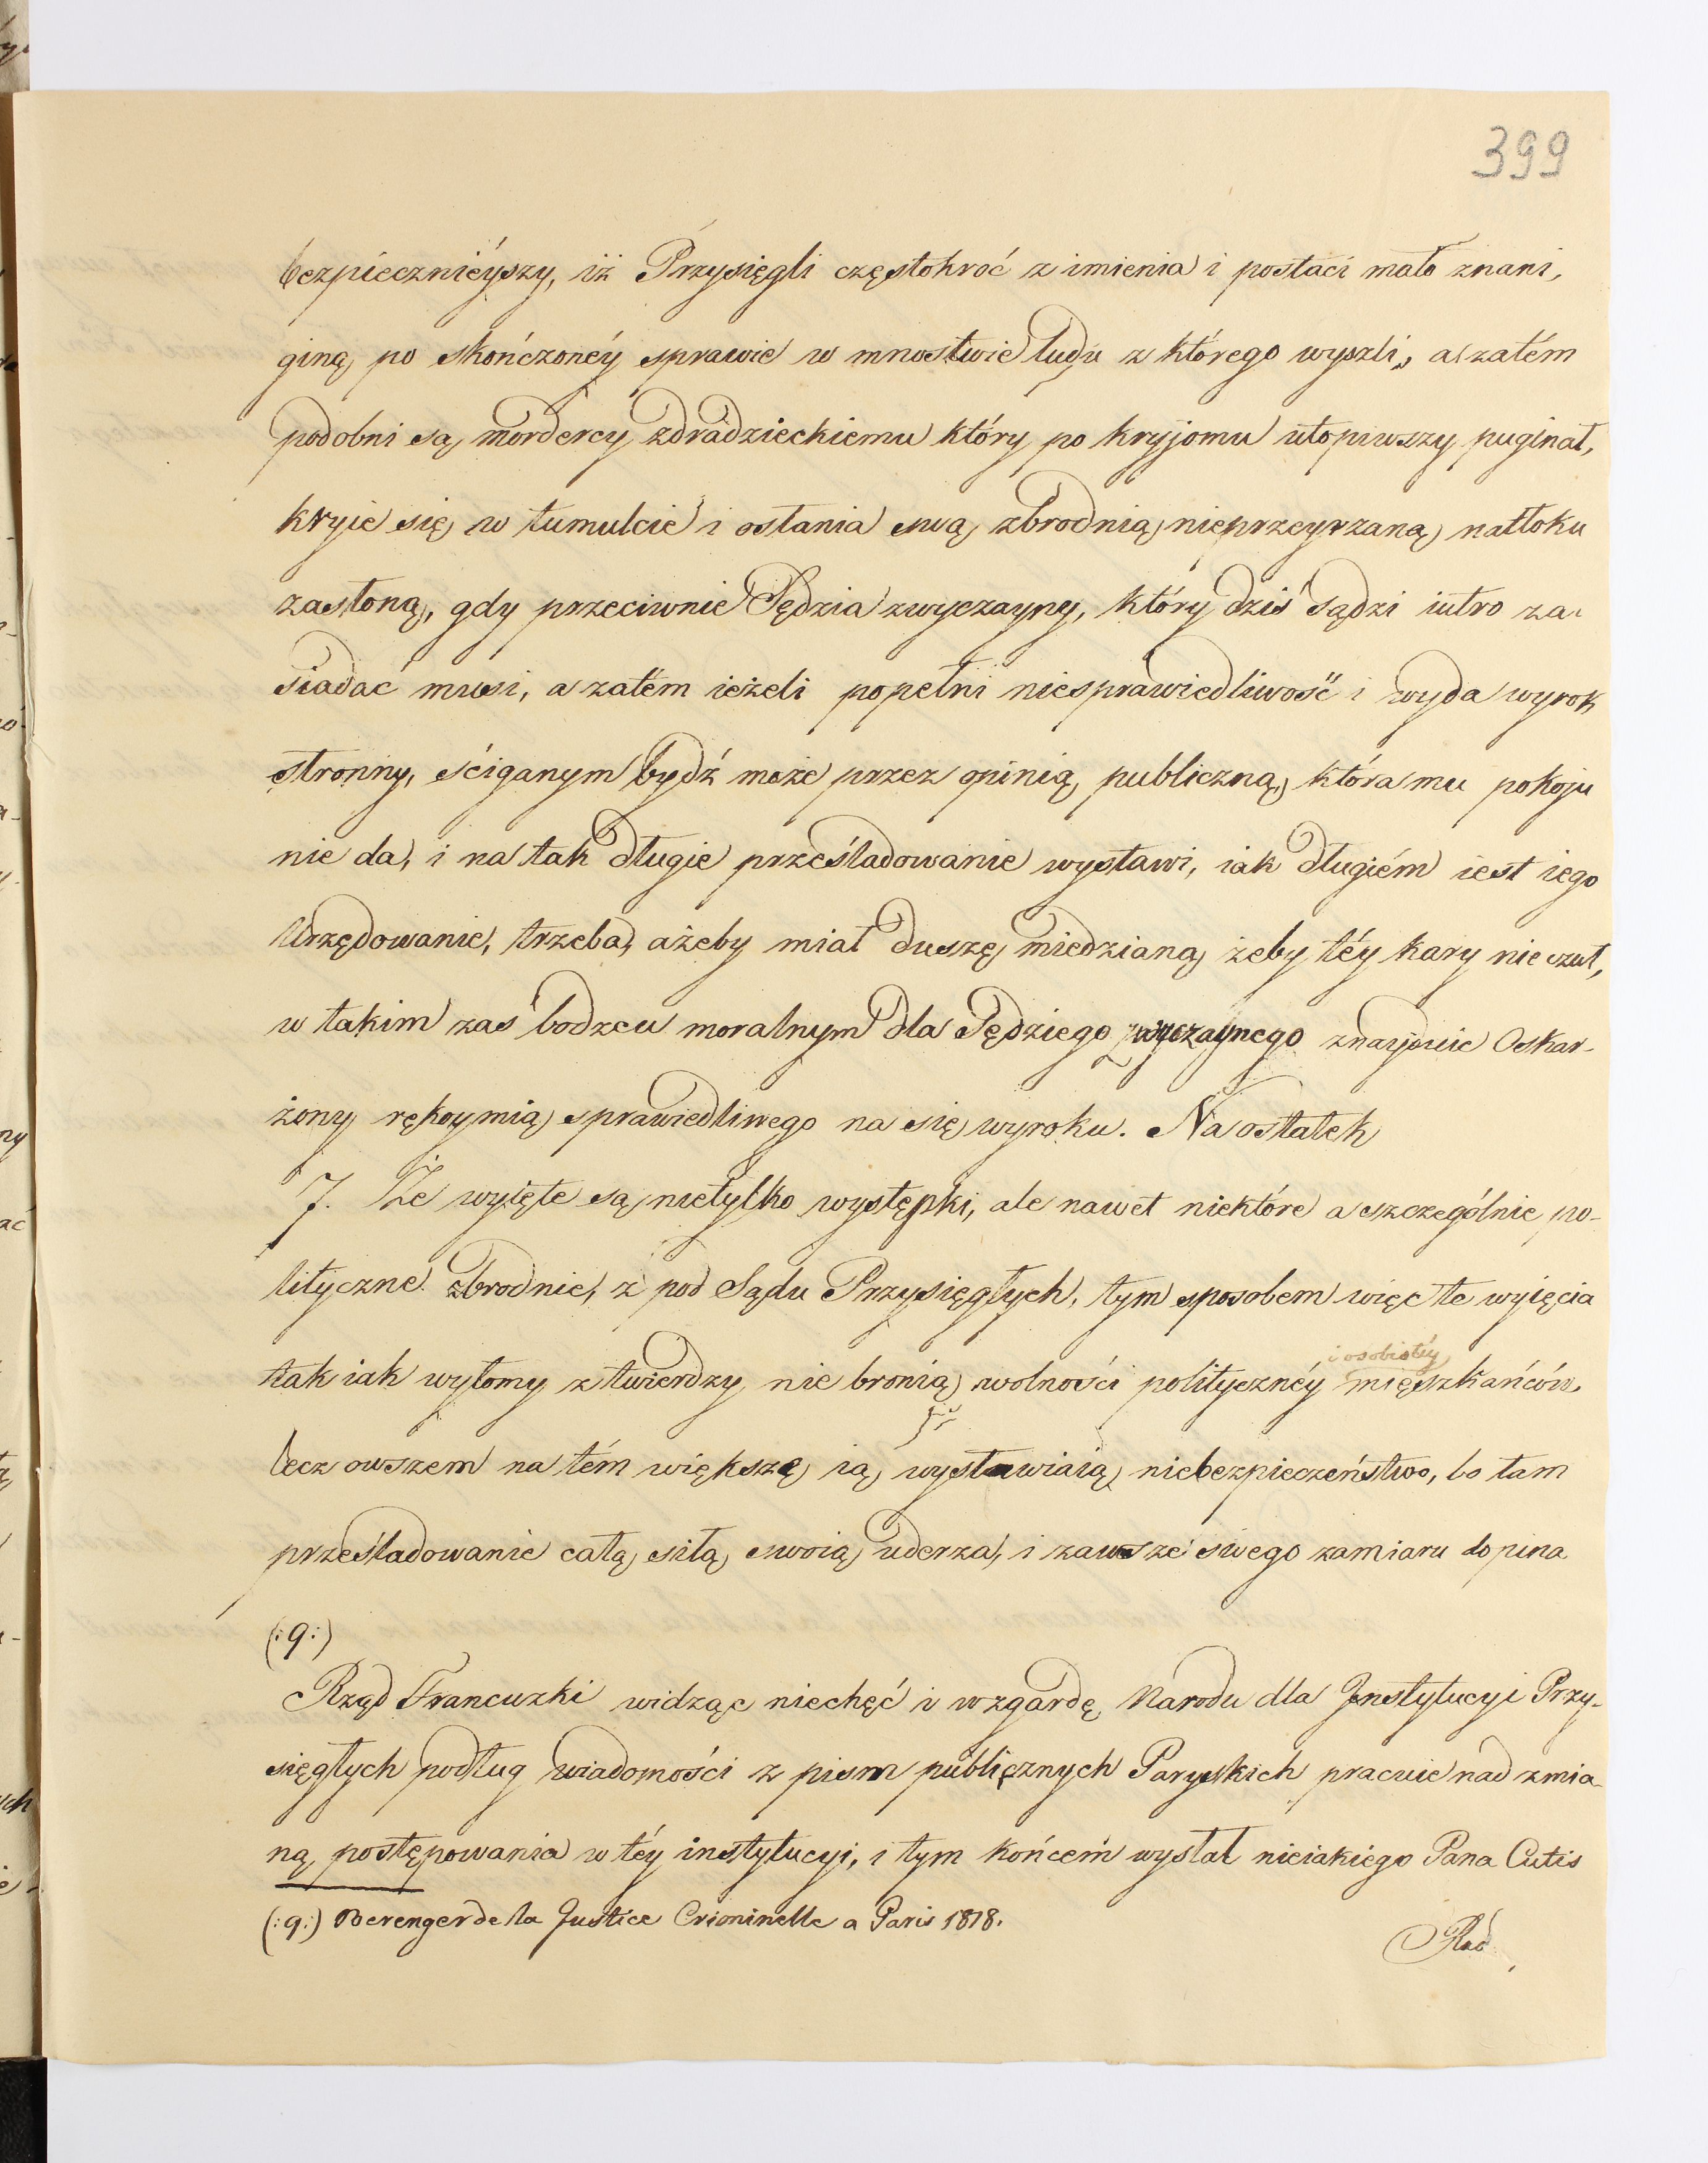 399
bezpiecznieyszy, iż Przysięgli częstokroć z imienia i postaci mało znani,
giną po skończonéy sprawie w mnostwie ludu z którego wyszli, a zatém
podobni są mordercy zdradzieckiemu który po kryjomu utopiwszy puginał,
kryie się w tumulcie i osłania swą zbrodnią nieprzeyrzaną natłoku
zasłoną, gdy przeciwnie Sędzia zwyczayny, który dziś sądzi iutro za-
siadać musi, a zatém ieżeli popełni niesprawiedliwość i wyda wyrok
stronny, ściganym bydź może przez opinią publiczną, która mu pokoju
nie da, i na tak długie prześladowanie wystawi, iak długiém iest iego
Urzędowanie, trzeba, ażeby miał duszę miedzianą żeby téy kary nie czuł,
w takim zaś bodzcu moralnym dla Sędziego zwyczaynego znayduie Oskar-
żony rękoymią sprawiedliwego na się wyroku. Na ostatek
7. Że wyięte są nietylko występki, ale nawet niektóre a szczególnie po-
lityczne zbrodnie, z pod Sądu Przysięgłych, tym sposobem więc te wyięcia
i osobistéy
tak iak wyłomy z twierdzy nie bronią wolności politycznéy mięszkańców,
lecz owszem na tém większę ią wystawiaią niebezpieczeństwo, bo tam
prześladowanie całą siłą swoią uderza, i zawsze swego zamiaru dopina
(:q:)
Rząd Francuzki widząc niechęć i wzgardę Narodu dla Jnstytucyi Przy-
sięgłych podług wiadomości z pism publicznych Paryskich pracuie nad zmia-
ną postępowania w téy instytucyi, i tym końcem wysłał nieiakiego Pana Cutis
(:q:) Berenger de la Justice Criminelle a Paris 1818.